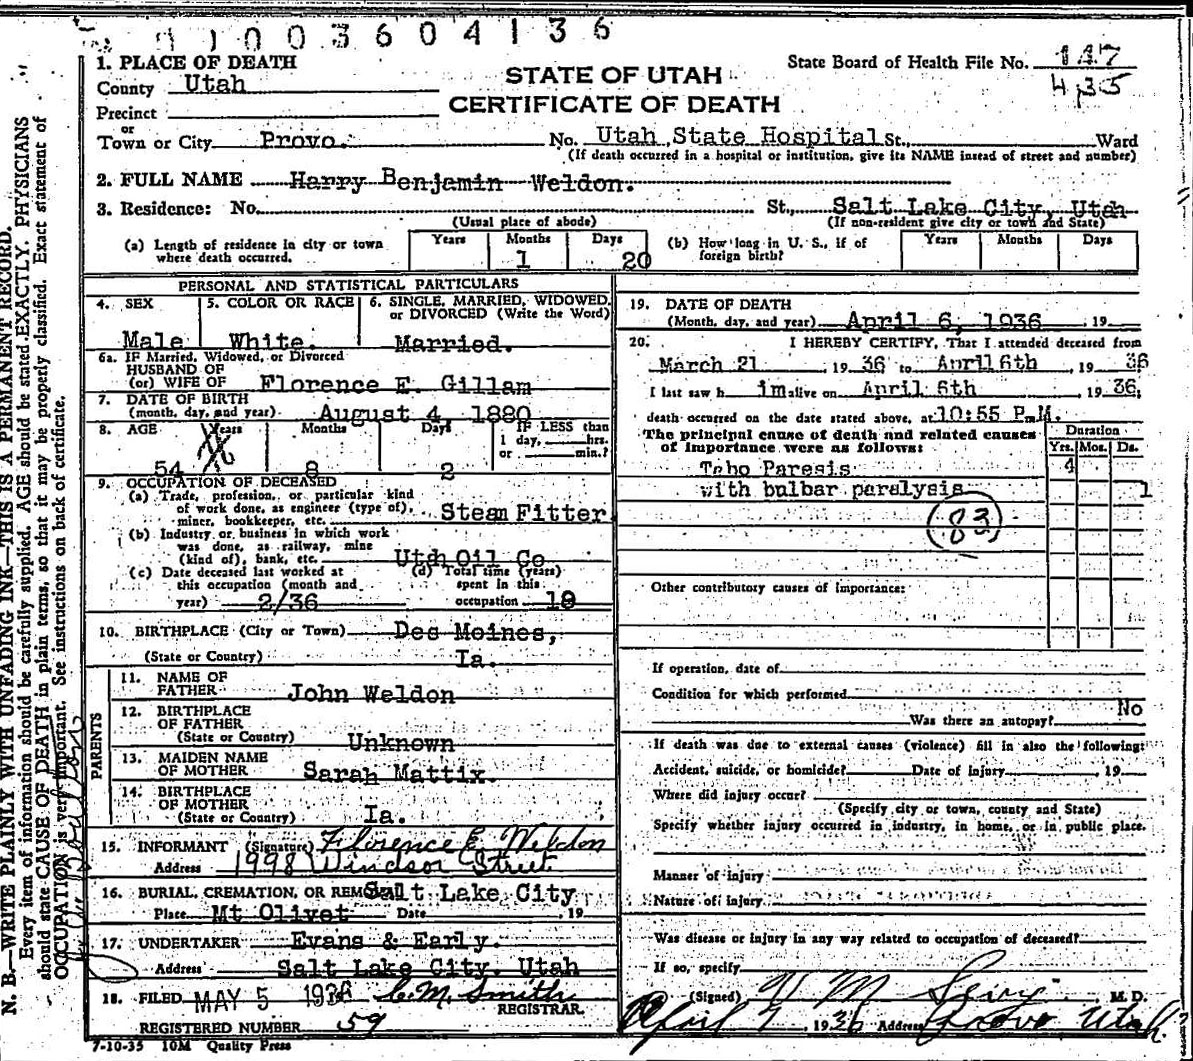 1 0 0 3 6 0 4 1 3 6
1. PLACE OF DEATH
County Utah
Precinct
or
Town or City Provo.
STATE OF UTAH
CERTIFICATE OF DEATH
State Board of Health File No. 147
435
No. Utah State Hospital St., Ward
(If death occurred in a hospital or institution, give its NAME instead of street and number)
2. FULL NAME Harry Benjamin Weldon.
3. Residence: No. St., Salt Lake City, Utah
(Usual place of abode) (If non-resident give city or town and State)
(a) Length of residence in city or town where death occurred. Years Months 1 Days 20
(b) How long in U. S., if of foreign birth? Years Months Days
PERSONAL AND STATISTICAL PARTICULARS
4. SEX 5. COLOR OR RACE 6. SINGLE, MARRIED, WIDOWED, or DIVORCED (Write the Word)
Male White. Married.
6a. IF Married, Widowed, or Divorced
HUSBAND OF
(or) WIFE OF Florence E. Gillam
7. DATE OF BIRTH
(month, day, and year) August 4, 1880
8. AGE Years Months Days IF LESS than
1 day, hrs.
or min.?
54 8 2
9. OCCUPATION OF DECEASED
(a) Trade, profession, or particular kind
of work done, as engineer (type of),
miner, bookkeeper, etc. Steam Fitter
(b) Industry or business in which work
was done, as railway, mine
(kind of), bank, etc. Utah Oil Co
(c) Date deceased last worked at
this occupation (month and
year) 2/36
(d) Total time (years)
spent in this
occupation 18
10. BIRTHPLACE (City or Town) Des Moines,
(State or Country) Ia.
PARENTS
11. NAME OF
FATHER John Weldon
12. BIRTHPLACE
OF FATHER
(State or Country) Unknown
13. MAIDEN NAME
OF MOTHER Sarah Mattix.
14. BIRTHPLACE
OF MOTHER
(State or Country) Ia.
15. INFORMANT (Signature) Florence E. Weldon
Address 1998 Windsor Street
16. BURIAL, CREMATION, OR REMOVAL Salt Lake City
Place Mt Olivet Date , 19
17. UNDERTAKER Evans & Early.
Address Salt Lake City. Utah
18. FILED MAY 5 1936 C. M. Smith
REGISTRAR.
REGISTERED NUMBER 59
7-10-35 10M Quality Press
19. DATE OF DEATH
(Month, day, and year) April 6, 1936 , 19
20. I HEREBY CERTIFY, That I attended deceased from
March 21 , 19 36 to April 6th , 19 36
I last saw h im alive on April 6th , 19 36,
death occurred on the date stated above, at 10:55 P.M.
The principal cause of death and related causes
of importance were as follows:
Duration
Yrs. Mos. Ds.
Tabo Paresis 4
with bulbar paralysis 1
83
Other contributory causes of importance:
If operation, date of
Condition for which performed
Was there an autopsy? No
If death was due to external causes (violence) fill in also the following:
Accident, suicide, or homicide? Date of Injury , 19
Where did injury occur?
(Specify city or town, county and State)
Specify whether injury occurred in industry, in home, or in public place.
Manner of injury
Nature of injury
Was disease or injury in any way related to occupation of deceased?
If so, specify
(Signed) M. D.
April 7, 1936 Address Provo Utah
N. B.—WRITE PLAINLY WITH UNFADING INK—THIS IS A PERMANENT RECORD.
Every item of information should be carefully supplied. AGE should be stated EXACTLY. PHYSICIANS
should state CAUSE OF DEATH in plain terms, so that it may be properly classified. Exact statement of
OCCUPATION is very important. See instructions on back of certificate.